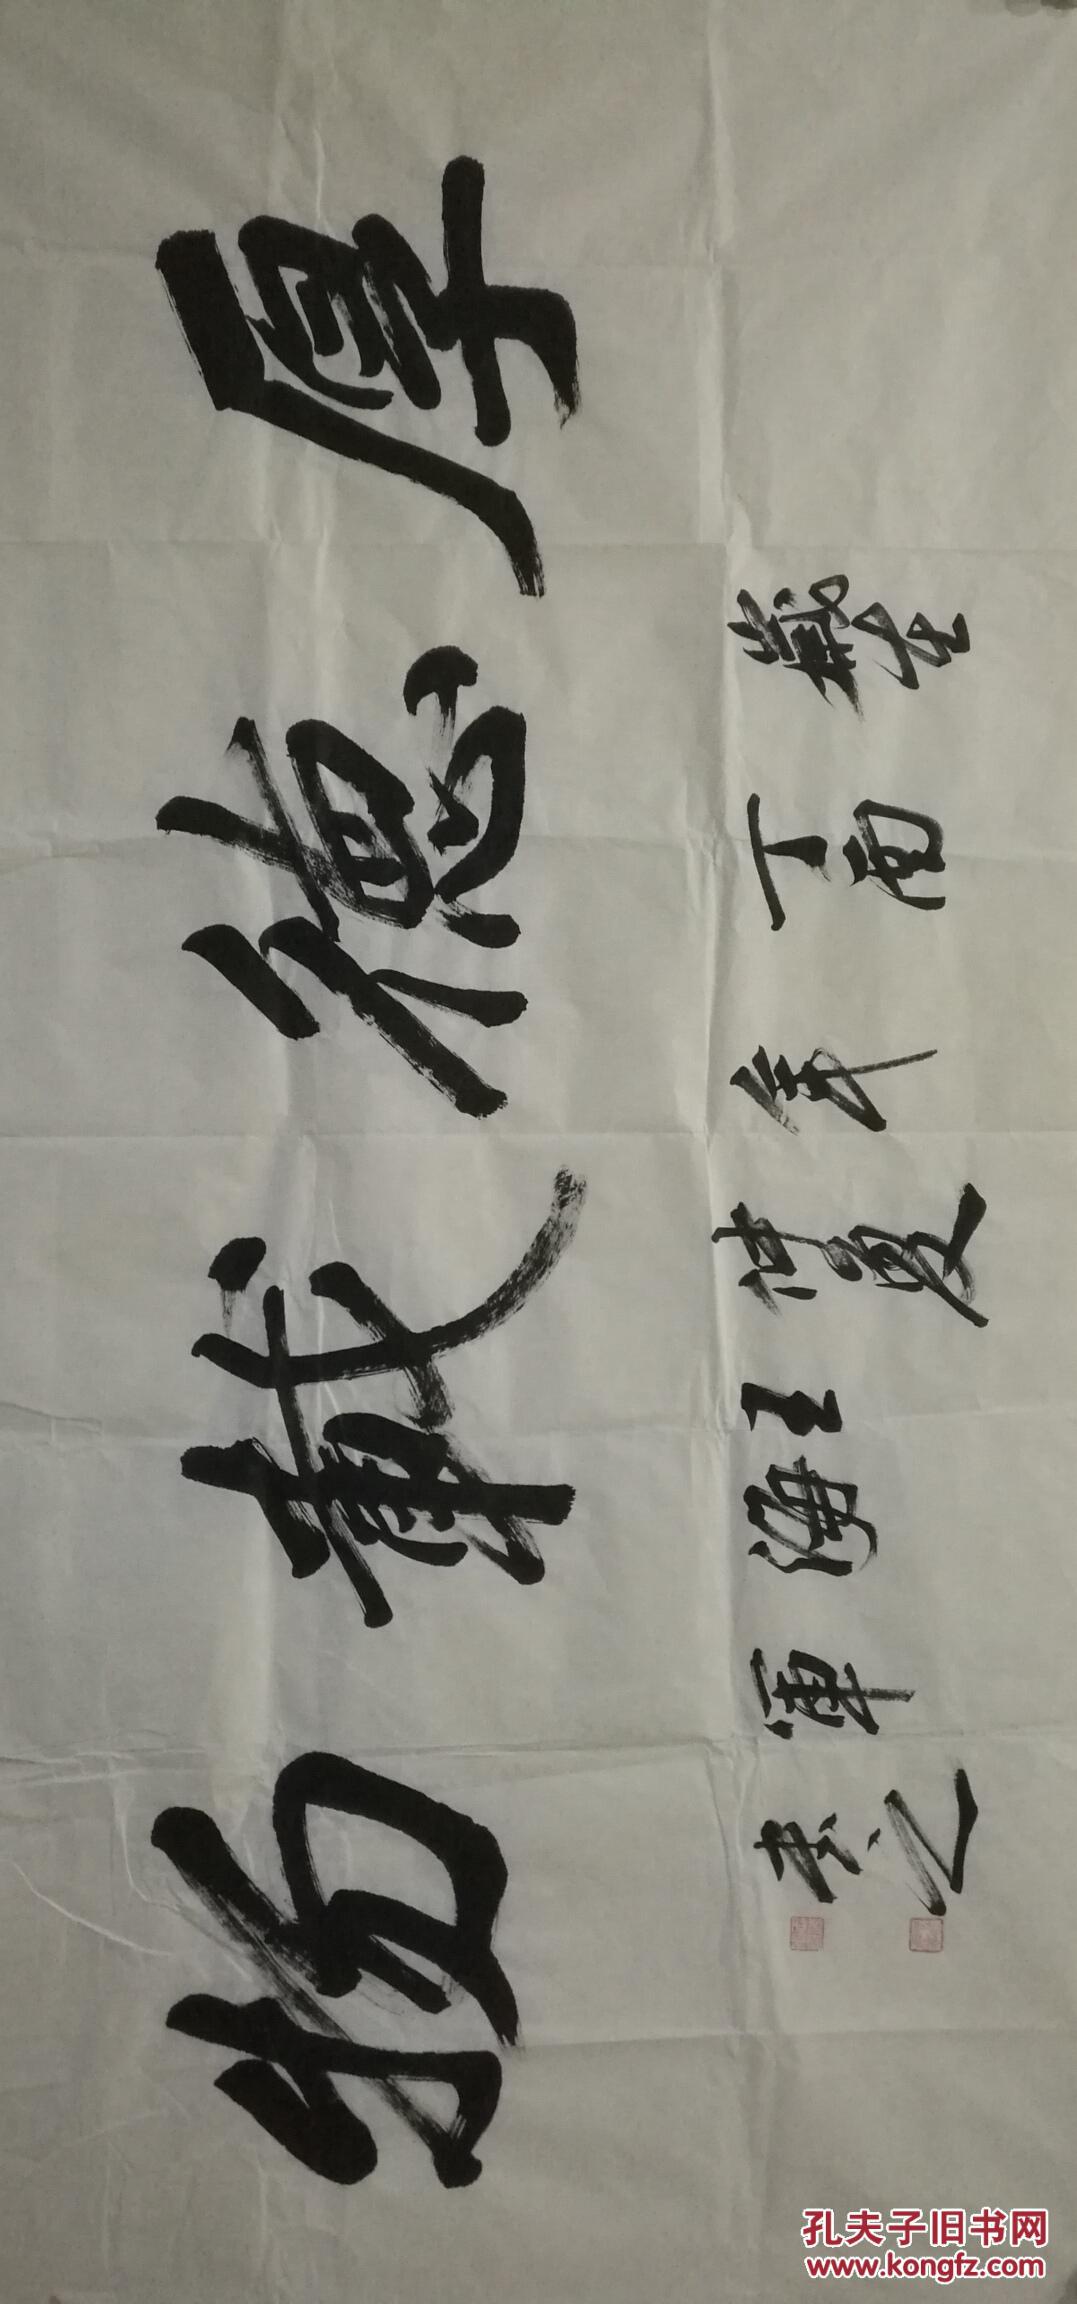 厚德載物
歲在丁酉年夏王海軍书之
孔夫子旧书网
www.kongfz.com